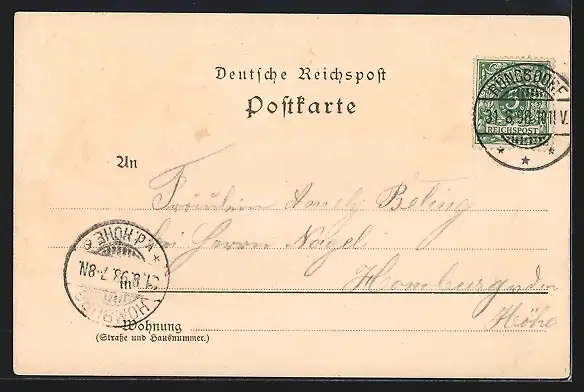 Deutsche Reichspost
Postkarte
RÜNGSDORF
31.8.98.10-11V.
REICHSPOST
An
Fräulein Amely Beling
bei Herrn Nagel
Homburg v. den
Höhe
HOMBURG v.d. HÖHE
31.8.98. 7-8N.
in
Wohnung
(Straße und Hausnummer.)